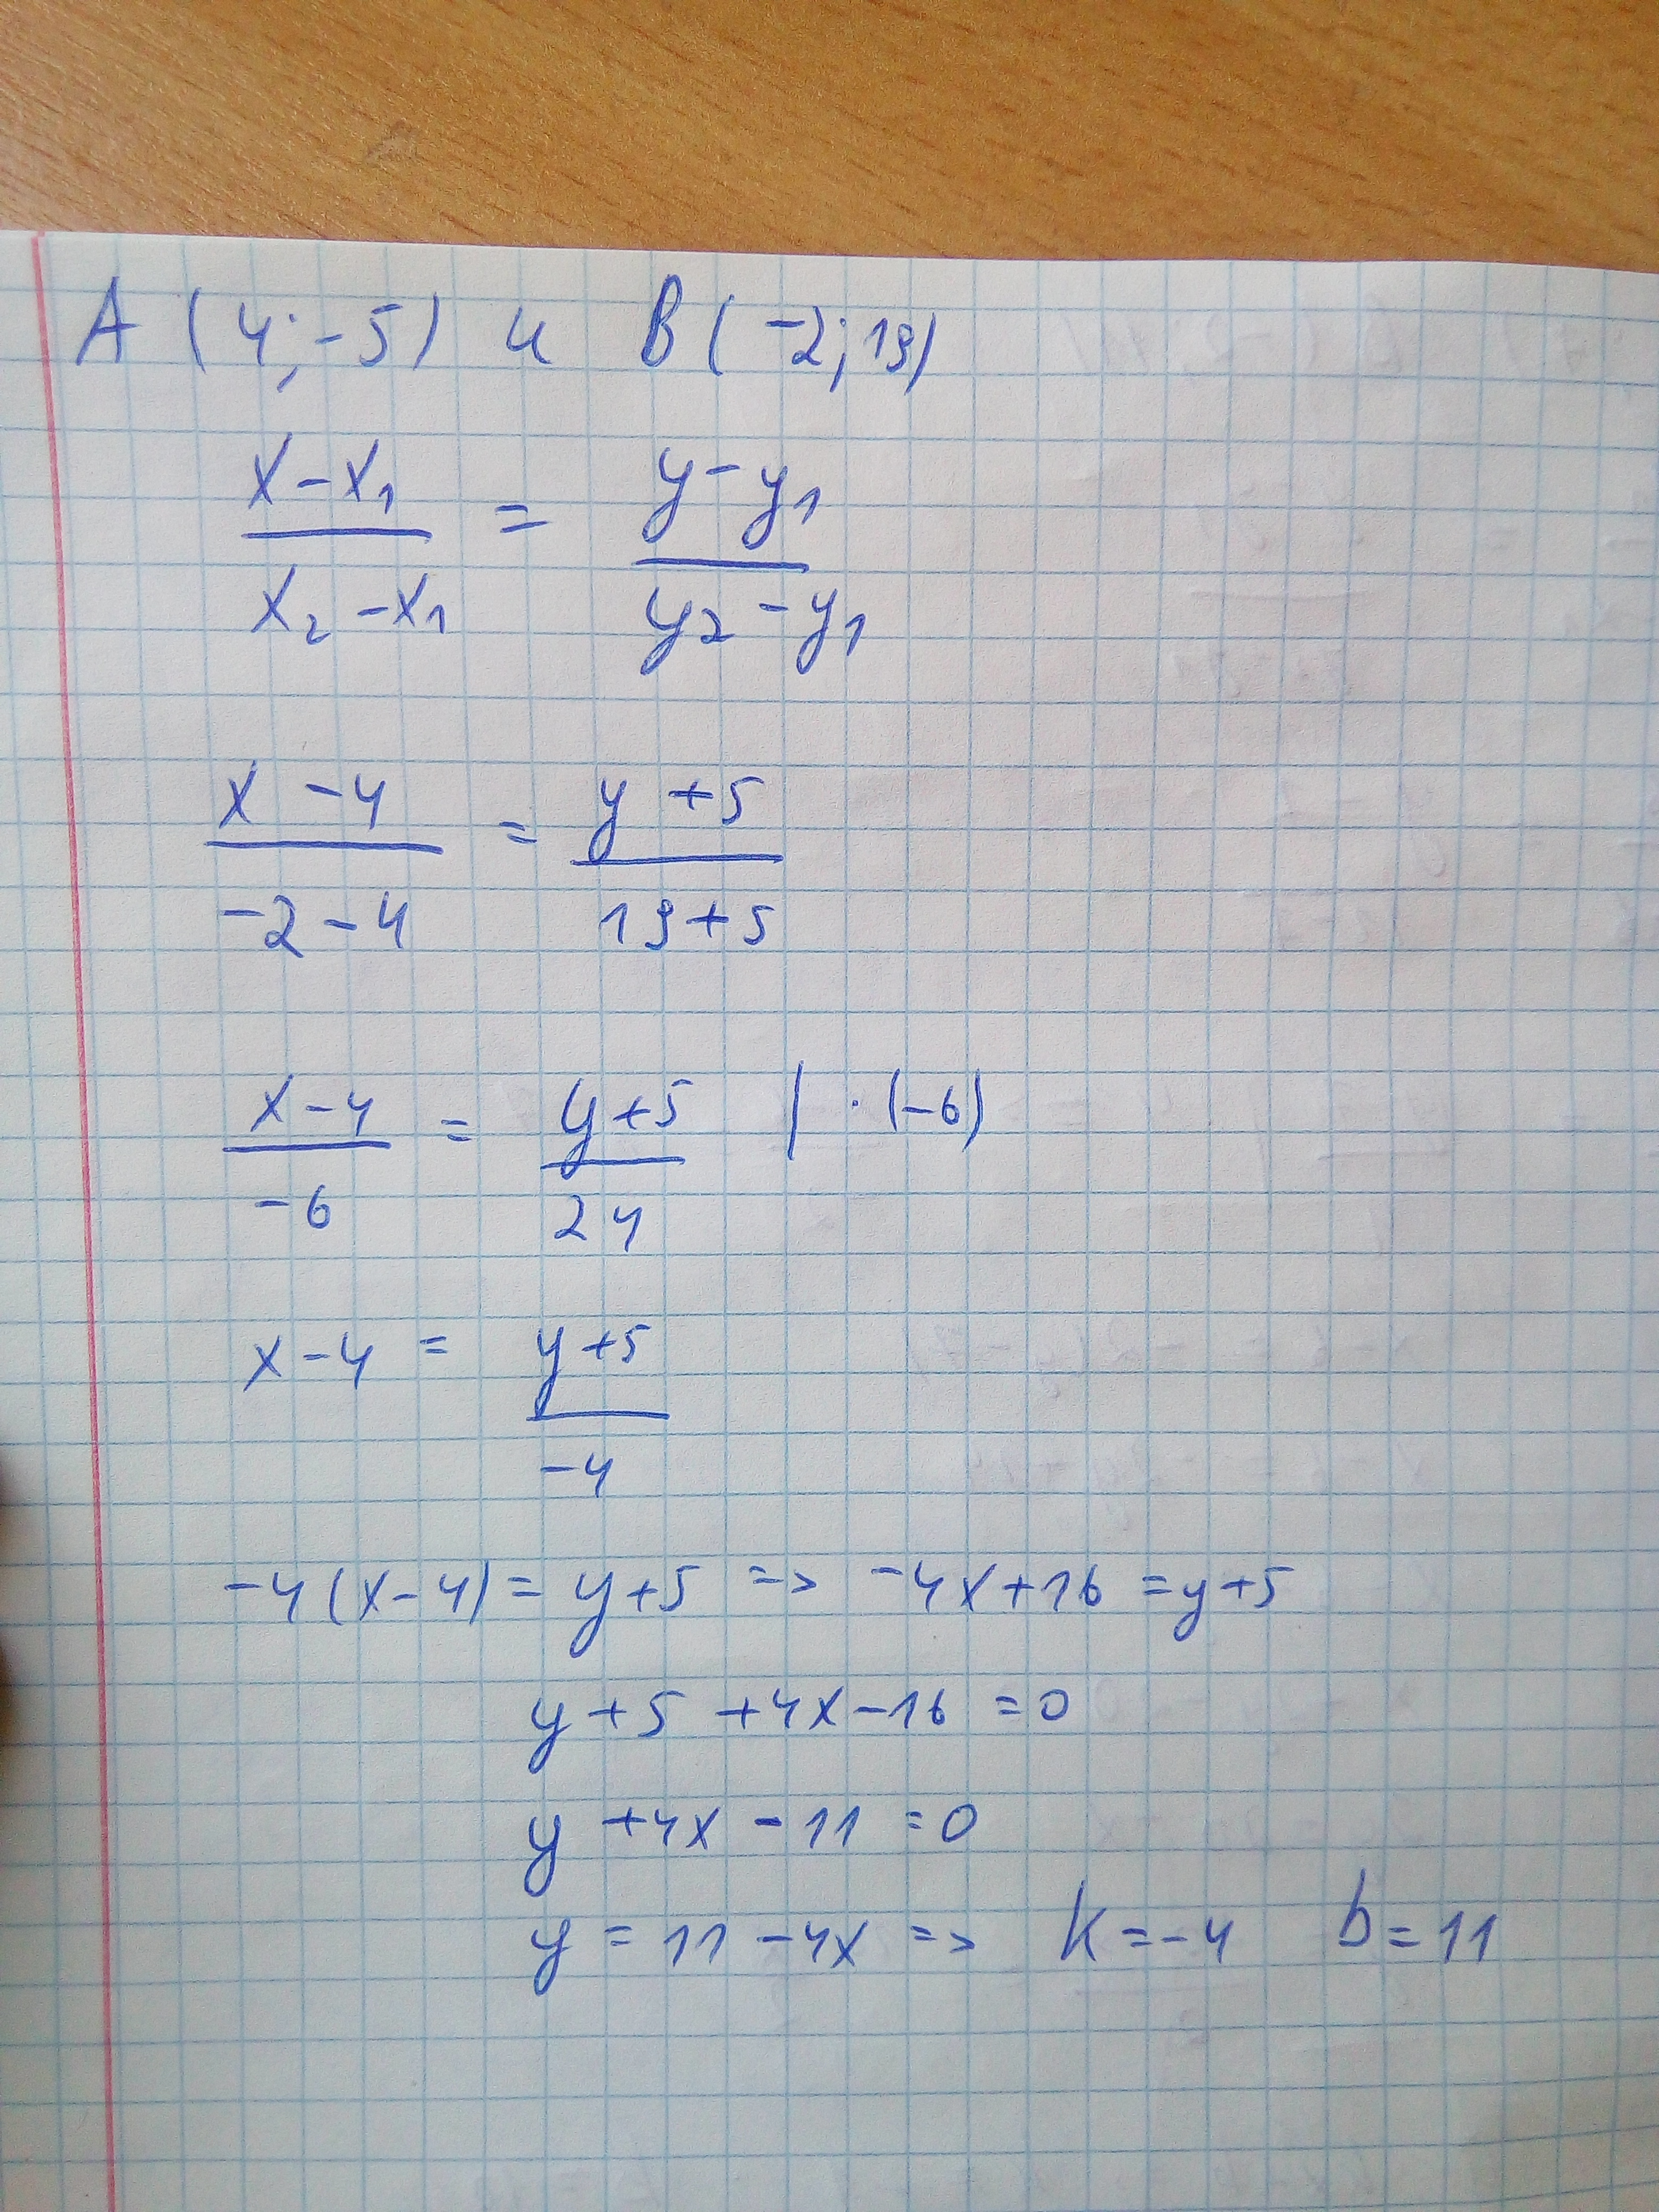 A (4; -5) и B (-2; 19)
x - x₁ / x₂ - x₁ = y - y₁ / y₂ - y₁
x - 4 / -2 - 4 = y + 5 / 19 + 5
x - 4 / -6 = y + 5 / 24 | · (-6)
x - 4 = y + 5 / -4
-4 (x - 4) = y + 5 => -4x + 16 = y + 5
y + 5 + 4x - 16 = 0
y + 4x - 11 = 0
y = 11 - 4x => k = -4 b = 11